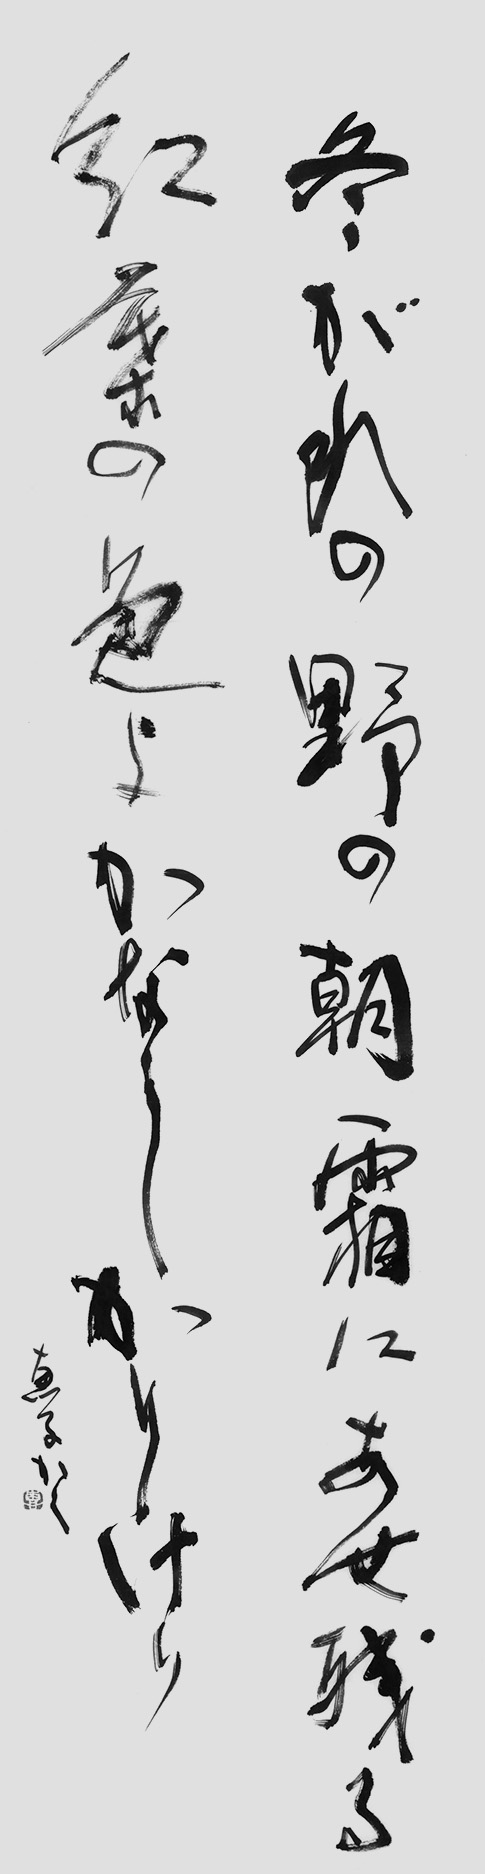 冬がれの野の朝霜にあせ残る
紅葉の色よかなしかりけり
恵子かく